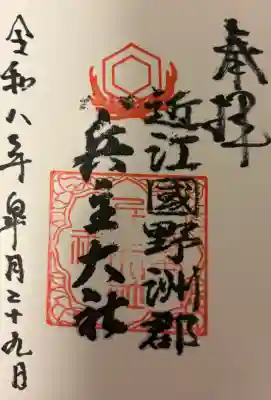 奉拝
近江國野洲郡
兵主大社
令和八年皐月二十九日